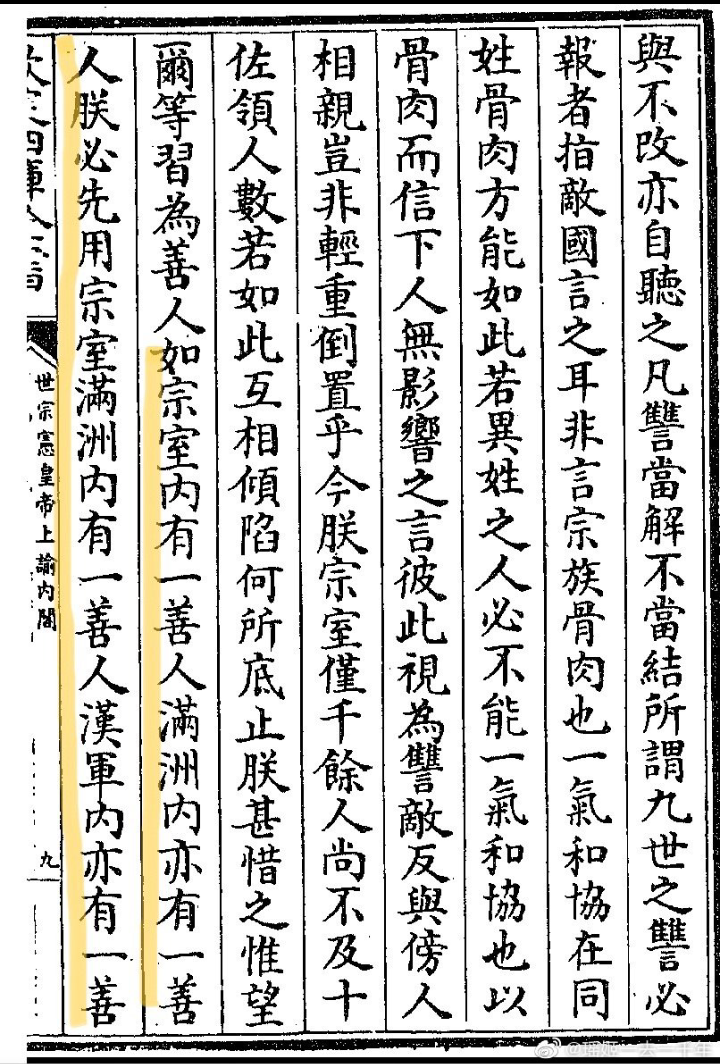 與不改亦自聽之凡讐當解不當結所謂九世之讐必
報者指敵國言之耳非言宗族骨肉也一氣和協在同
姓骨肉方能如此若異姓之人必不能一氣和協也以
骨肉而信下人無影響之言彼此視為讐敵反與傍人
相親豈非輕重倒置乎今朕宗室僅千餘人尚不及十
佐領人數若如此互相傾陷何所底止朕甚惜之惟望
爾等習為善人如宗室内有一善人滿洲内亦有一善
人朕必先用宗室滿洲内有一善人漢軍内亦有一善
世宗憲皇帝上諭内閣
九